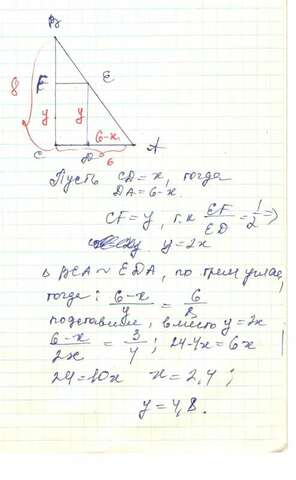 B
8
F
E
y
y
6-x
C
D
6
A
Пусть CD = x, тогда
DA = 6-x.
CF = y, т.к. EF/ED = 1/2 =>
y = 2x
Δ BCA ~ EDA, по трем углам,
тогда: (6-x)/y = 6/8
подставим, вместо y = 2x
(6-x)/2x = 3/4; 24-4x = 6x
24 = 10x x = 2,4;
y = 4,8.